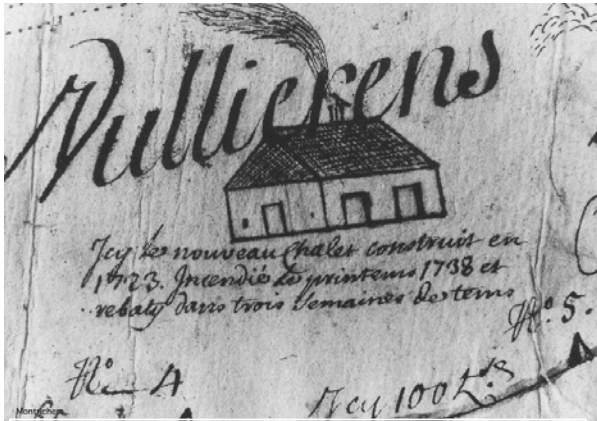 Vullierens
Jcy le nouveau Chalet construit en
1723. Jncendié le printems 1738 et
rebaty dans trois Semaines de tems
No. 5.
No. 4
Jcy 100 t.ses
Montricher